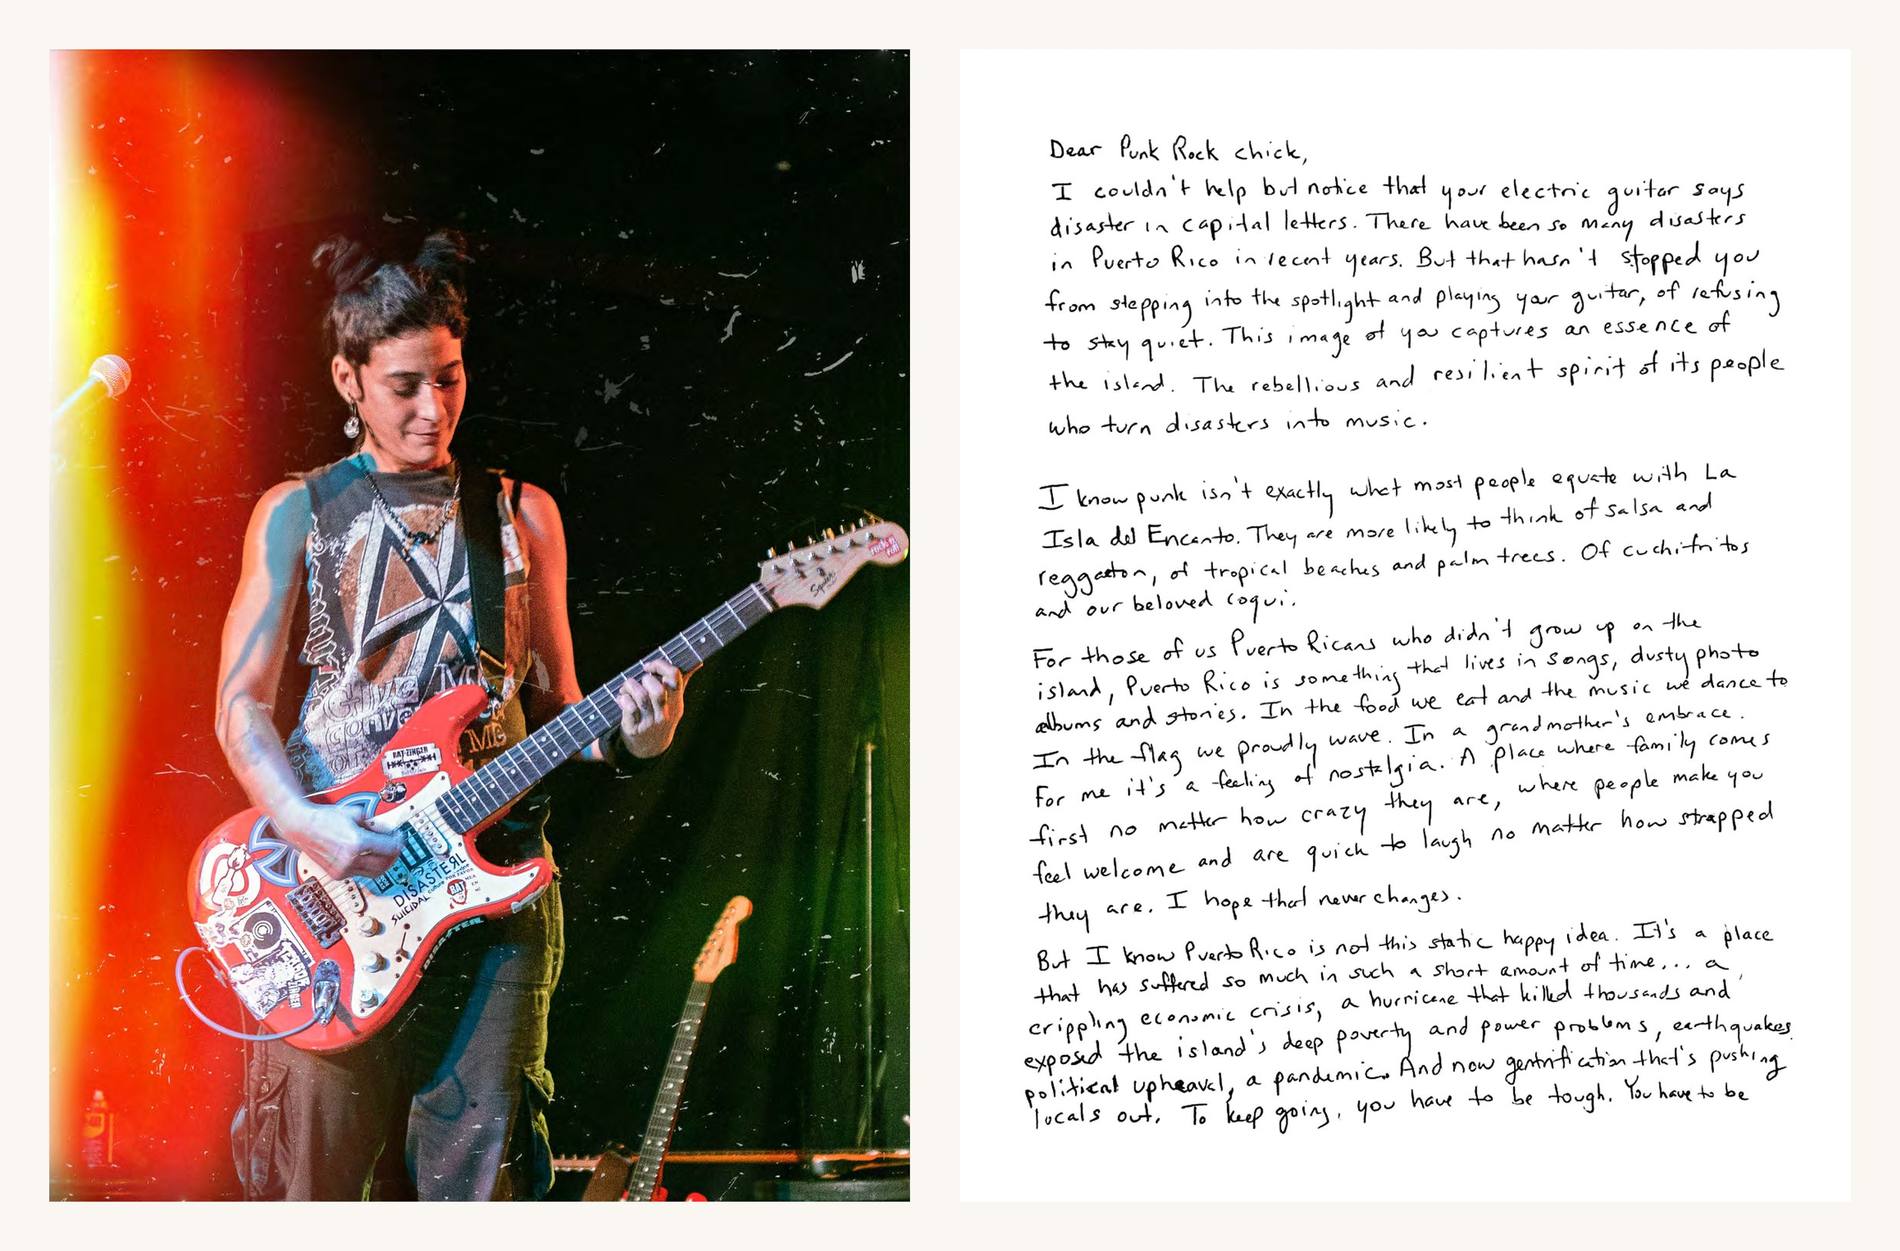 rock n roll
Squier
GIVE ME
CONVE
OR
ME
RAT-ZINGER
DISASTER!
SUICIDAL
DISASTER
Dear Punk Rock chick,
I couldn't help but notice that your electric guitar says
disaster in capital letters. There have been so many disasters
in Puerto Rico in recent years. But that hasn't stopped you
from stepping into the spotlight and playing your guitar, of refusing
to stay quiet. This image of you captures an essence of
the island. The rebellious and resilient spirit of its people
who turn disasters into music.
I know punk isn't exactly what most people equate with La
Isla del Encanto. They are more likely to think of salsa and
reggaeton, of tropical beaches and palm trees. Of cuchifritos
and our beloved coqui.
For those of us Puerto Ricans who didn't grow up on the
island, Puerto Rico is something that lives in songs, dusty photo
albums and stories. In the food we eat and the music we dance to
In the flag we proudly wave. In a grandmother's embrace.
For me it's a feeling of nostalgia. A place where family comes
first no matter how crazy they are, where people make you
feel welcome and are quick to laugh no matter how strapped
they are. I hope that never changes.
But I know Puerto Rico is not this static happy idea. It's a place
that has suffered so much in such a short amount of time... a
crippling economic crisis, a hurricane that killed thousands and
exposed the island's deep poverty and power problems, earthquakes
political upheaval, a pandemic. And now gentrification that's pushing
locals out. To keep going, you have to be tough. You have to be